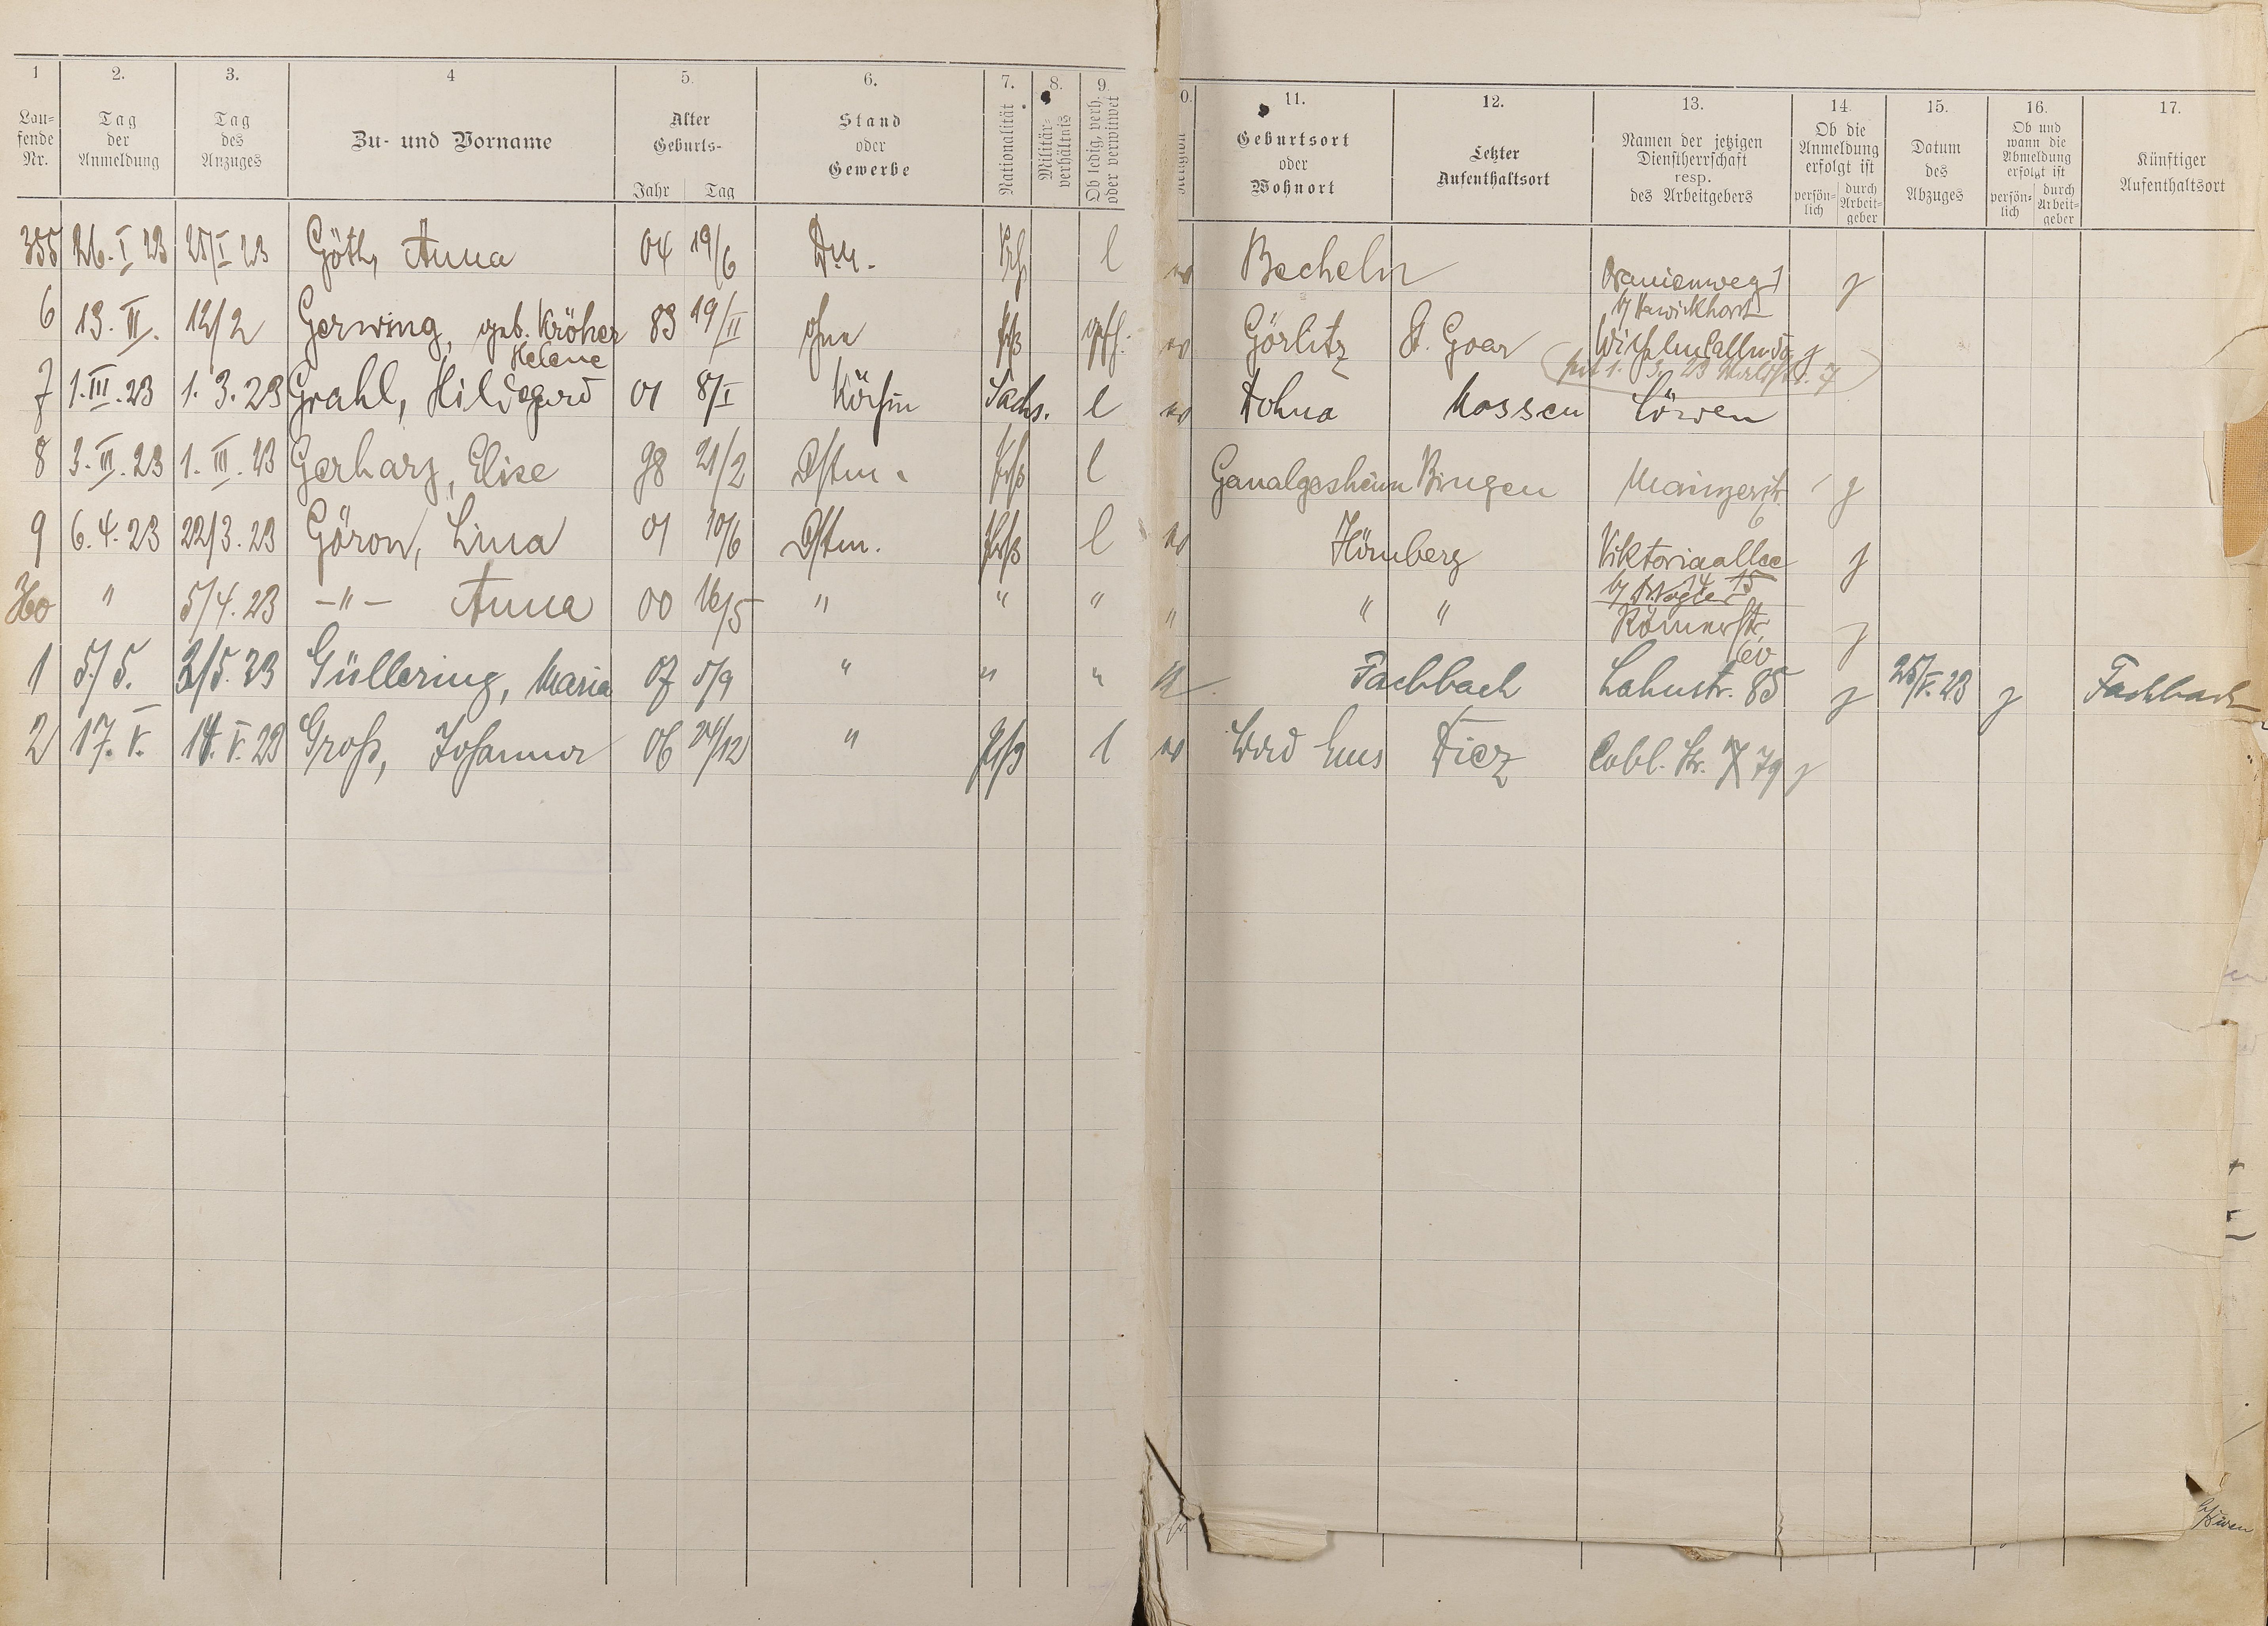 1 2. 3. 4 5. 6. 7. 8. 9. 0. 11. 12. 13. 14. 15. 16. 17.
Lau-
fende
Nr.
Tag
der
Anmeldung
Tag
des
Anzuges
Zu- und Vorname
Alter
Geburts-
Jahr Tag
Stand
oder
Gewerbe
Nationalität
Militär-
verhältnis
Ob ledig, verh.
oder verwitwet
Religion
Geburtsort
oder
Wohnort
Letzter
Aufenthaltsort
Namen der jetzigen
Dienstherrschaft
resp.
des Arbeitgebers
Ob die
Anmeldung
erfolgt ist
persön-
lich
durch
Arbeit-
geber
Datum
des
Abzuges
Ob und
wann die
Abmeldung
erfolgt ist
persön-
lich
durch
Arbeit-
geber
Künftiger
Aufenthaltsort
355 26. I 23 25/I 23 Göth, Anna 04 19/6 l Becheln Oranienweg 1 j
6 13. II. 12/2 Gerwing, geb. Kröher 83 19/II ohne Görlitz St. Goar Wilhelmsallee j
Helene
7 1. III. 23 1. 3. 23 Grahl, Hildegard 01 8/I Köchin Sachs. l Dohna Mossen Löwen
8 3. III. 23 1. III. 23 Gerharz, Elise 98 21/2 Dstm. l Gaualgesheim Bingen Mainzerstr. j
6
9 6. 4. 23 22/3. 23 Göron, Lina 01 10/6 Dstm. l Hömberg Viktoriaallee j
360 " 5/4. 23 -"- Anna 00 16/5 " " " " " " Römerstr. j
60
1 5./5. 2/5. 23 Güllering, Maria 07 5/9 " " " Fachbach Lahnstr. 85 j 25/V. 23 j Fachbach
2 17. V. 14. V. 23 Groß, Johanna 06 24/12 " l Bad Ems Diez Cobl. Str. 79 j